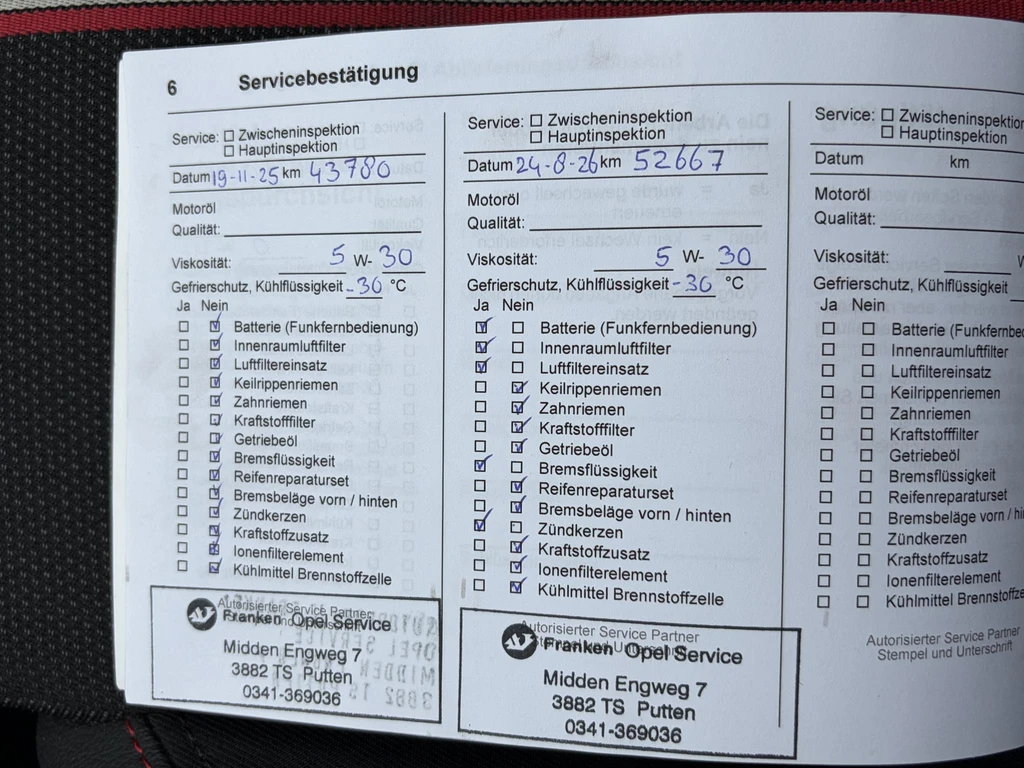 6 Servicebestätigung
Service: ☐ Zwischeninspektion
☐ Hauptinspektion
Datum 19-11-25 km 43780
Motoröl
Qualität:
Viskosität: 5 W- 30
Gefrierschutz, Kühlflüssigkeit -30 °C
Ja Nein
☐ ☑ Batterie (Funkfernbedienung)
☐ ☑ Innenraumluftfilter
☐ ☑ Luftfiltereinsatz
☐ ☑ Keilrippenriemen
☐ ☑ Zahnriemen
☐ ☑ Kraftstofffilter
☐ ☑ Getriebeöl
☐ ☑ Bremsflüssigkeit
☐ ☑ Reifenreparaturset
☐ ☑ Bremsbeläge vorn / hinten
☐ ☑ Zündkerzen
☐ ☑ Kraftstoffzusatz
☐ ☑ Ionenfilterelement
☐ ☑ Kühlmittel Brennstoffzelle
Autorisierter Service Partner
Stempel und Unterschrift
Franken Opel Service
Midden Engweg 7
3882 TS Putten
0341-369036
Service: ☐ Zwischeninspektion
☐ Hauptinspektion
Datum 24-8-26 km 52667
Motoröl
Qualität:
Viskosität: 5 W- 30
Gefrierschutz, Kühlflüssigkeit -36 °C
Ja Nein
☑ ☐ Batterie (Funkfernbedienung)
☑ ☐ Innenraumluftfilter
☑ ☐ Luftfiltereinsatz
☐ ☑ Keilrippenriemen
☐ ☑ Zahnriemen
☐ ☑ Kraftstofffilter
☐ ☑ Getriebeöl
☑ ☐ Bremsflüssigkeit
☐ ☑ Reifenreparaturset
☐ ☑ Bremsbeläge vorn / hinten
☑ ☐ Zündkerzen
☐ ☑ Kraftstoffzusatz
☐ ☑ Ionenfilterelement
☐ ☑ Kühlmittel Brennstoffzelle
Autorisierter Service Partner
Stempel und Unterschrift
Franken Opel Service
Midden Engweg 7
3882 TS Putten
0341-369036
Service: ☐ Zwischeninspektion
☐ Hauptinspektion
Datum km
Motoröl
Qualität:
Viskosität: W
Gefrierschutz, Kühlflüssigkeit
Ja Nein
☐ ☐ Batterie (Funkfernbe
☐ ☐ Innenraumluftfilter
☐ ☐ Luftfiltereinsatz
☐ ☐ Keilrippenriemen
☐ ☐ Zahnriemen
☐ ☐ Kraftstofffilter
☐ ☐ Getriebeöl
☐ ☐ Bremsflüssigkeit
☐ ☐ Reifenreparaturset
☐ ☐ Bremsbeläge vorn / hi
☐ ☐ Zündkerzen
☐ ☐ Kraftstoffzusatz
☐ ☐ Ionenfilterelement
☐ ☐ Kühlmittel Brennstoffze
Autorisierter Service Partner
Stempel und Unterschrift